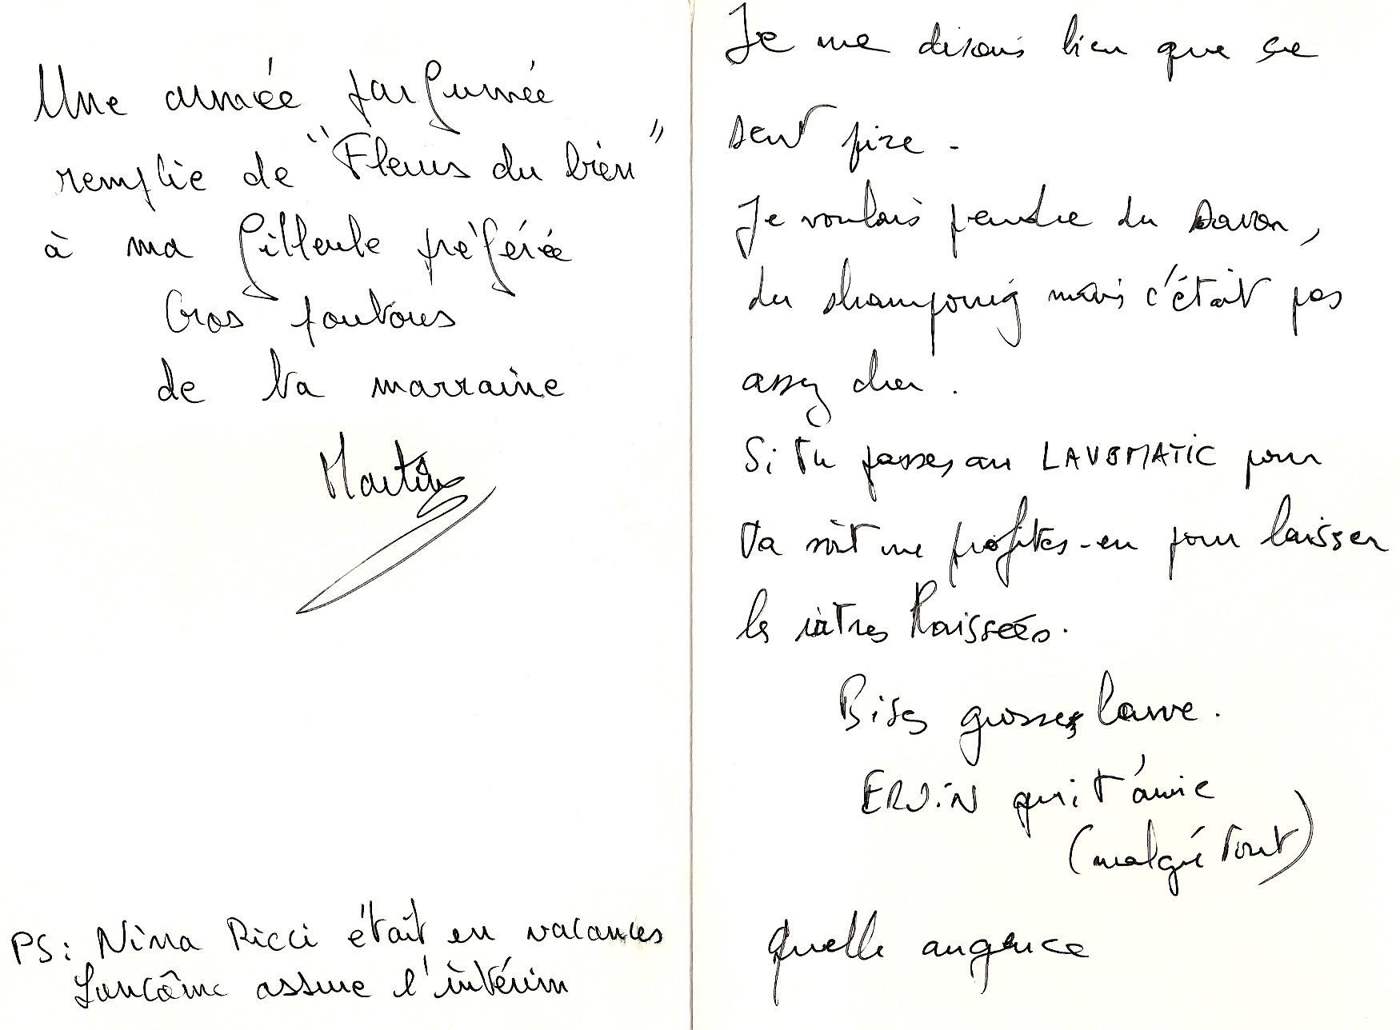 Une année parfumée
remplie de "Fleurs du bien"
à ma filleule préférée
Gros poutous
de ta marraine
Martine
PS: Nina Ricci était en vacances
Lancôme assure l'intérim
Je me disais bien que ça
sent pire -
Je voulais prendre du savon,
du shampoing mais c'était pas
assez cher.
Si tu passes au LAVOMATIC pour
ta profites-en pour laisser
les nôtres
Bises grosse larve.
qui t'aime
(malgré tout)
Quelle